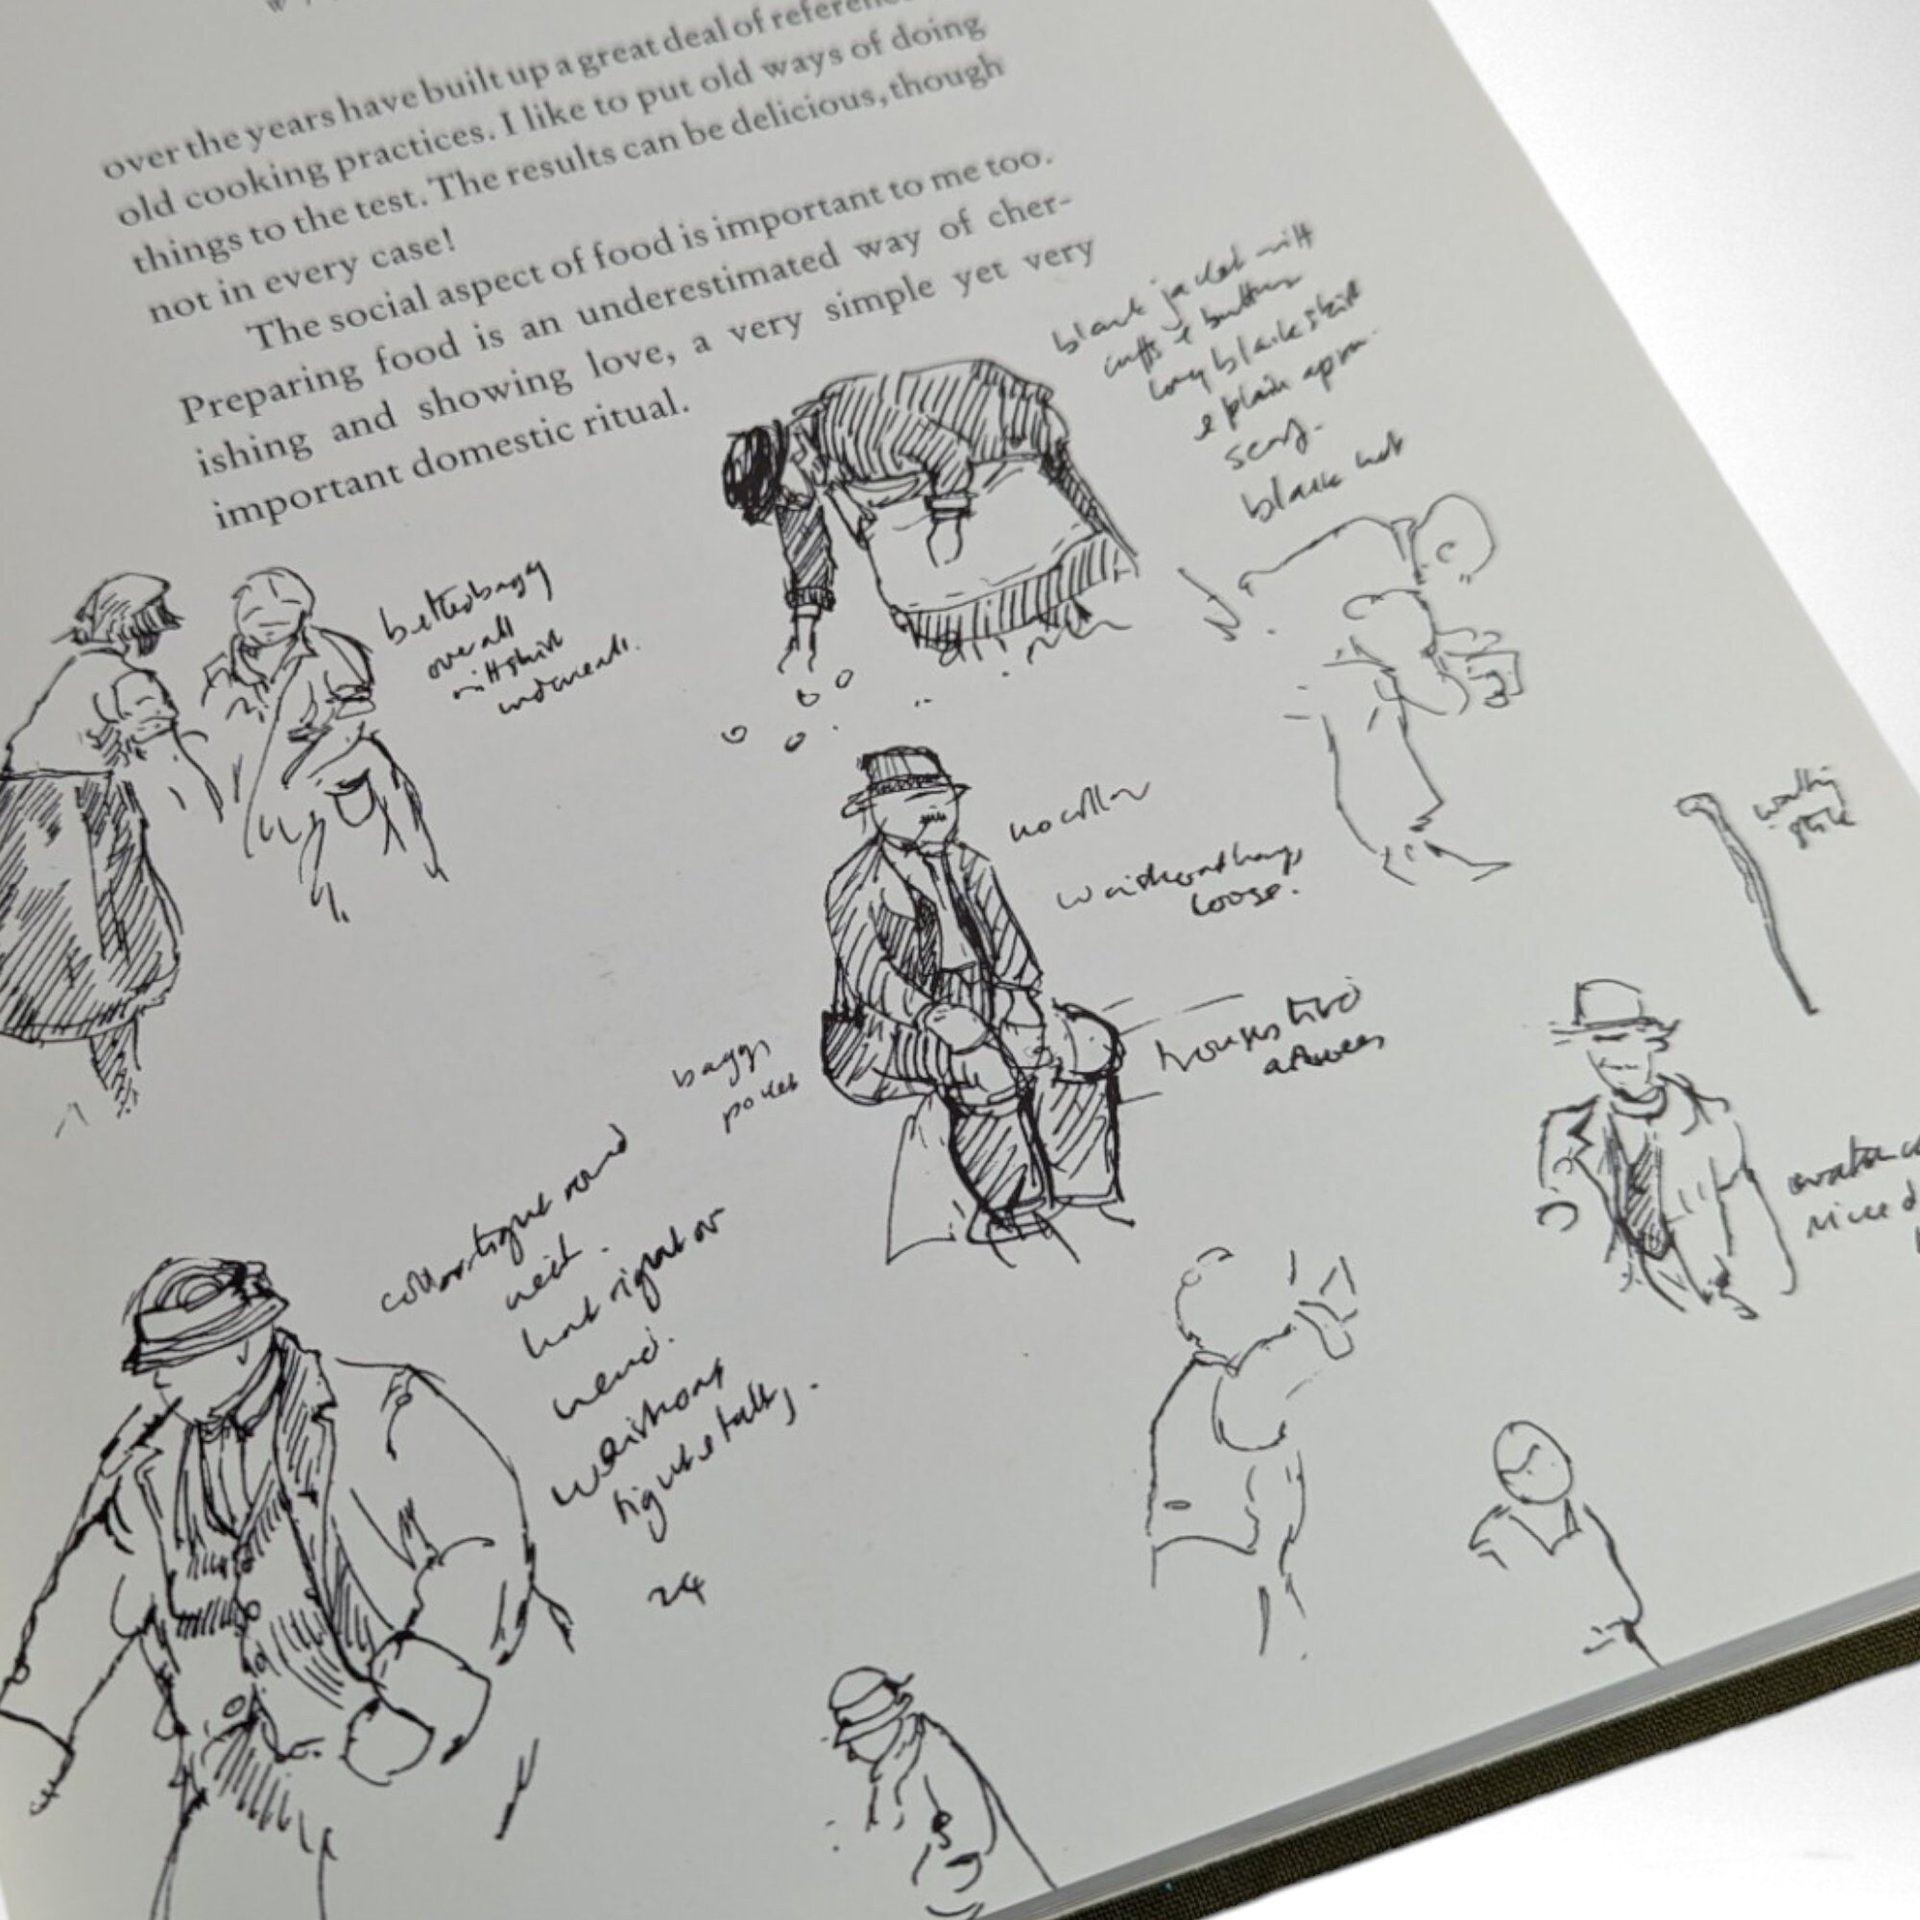 over the years have built up a great deal of reference
old cooking practices. I like to put old ways of doing
things to the test. The results can be delicious, though
not in every case!
The social aspect of food is important to me too.
Preparing food is an underestimated way of cher-
ishing and showing love, a very simple yet very
important domestic ritual.
black jacket with
cuffs & buttons
long black skirt
& plain apron
scarf.
black hat
belted baggy
overall
with skirt
underneath.
no collar
waistcoat hangs
loose.
walking
stick
baggy
pocket
trousers tied
at knees
collar tight round
neck.
hat right on
head.
waistcoat
tight
24